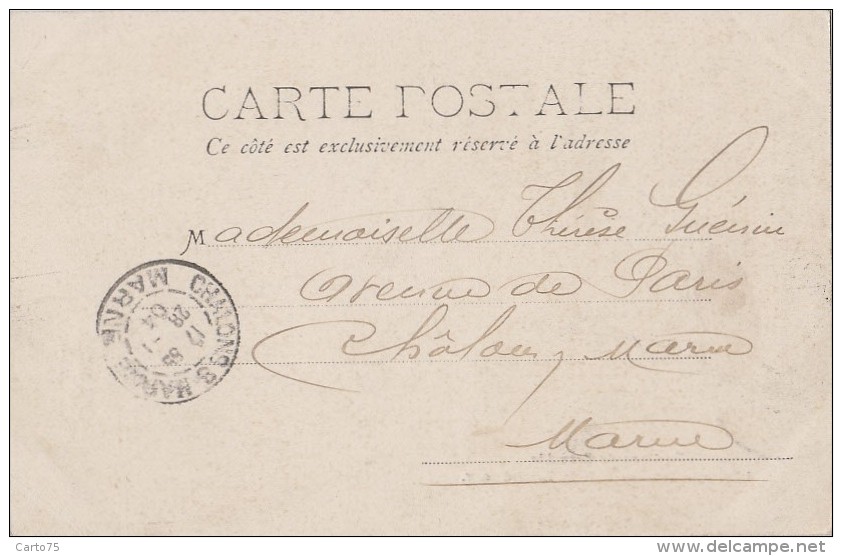 CARTE POSTALE
Ce côté est exclusivement réservé à l'adresse
Mademoiselle Thérèse Guérin
Avenue de Paris
Châlons s/ Marne
Marne
CHALONS S MARNE
MARNE
17
28 -1
04
Carto75
www.delcampe.net